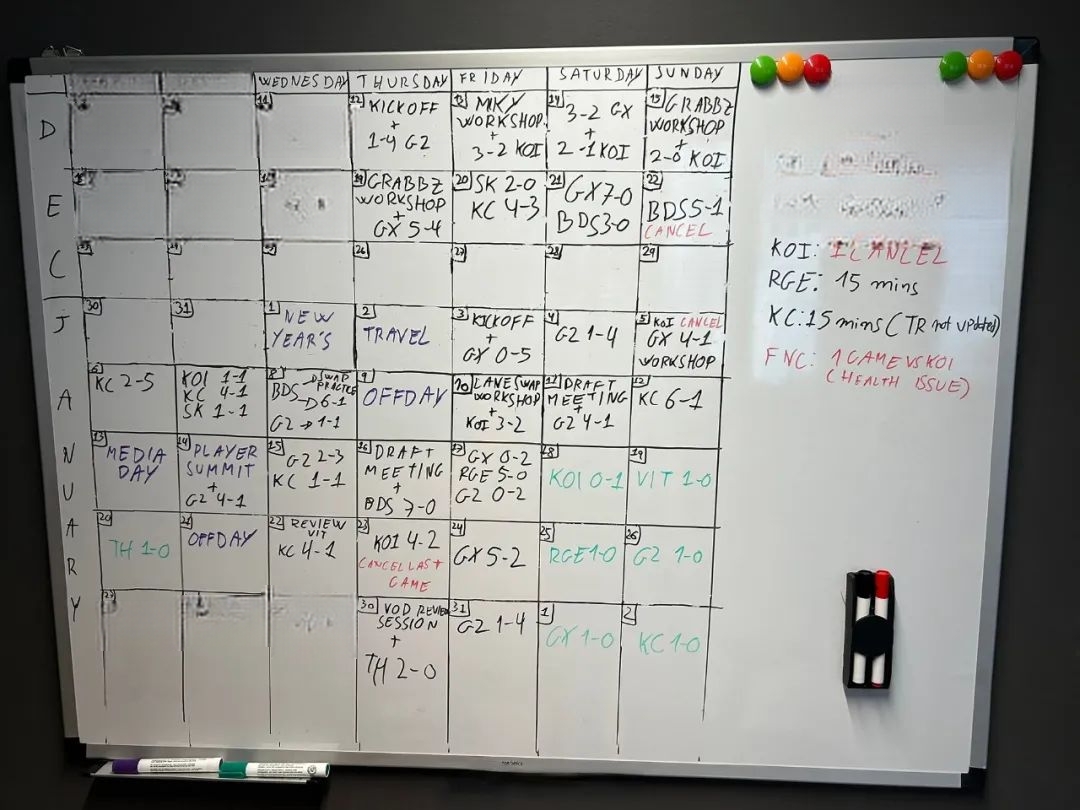 WEDNESDAY THURSDAY FRIDAY SATURDAY SUNDAY
DEC
JANUARY
11
12 KICKOFF
+
1-4 G2
13 MKY
WORKSHOP
+
3-2 KOI
14 3-2 GX
+
2-1 KOI
15 GRABBZ
WORKSHOP
+
2-0 KOI
19 GRABBZ
WORKSHOP
+
GX 5-4
20 SK 2-0
KC 4-3
21 GX 7-0
BDS 3-0
22
BDS 5-1
CANCEL
26
27
28
29
30
31
1 NEW
YEAR'S
2
TRAVEL
3 KICKOFF
+
GX 0-5
4
G2 1-4
5 KOI CANCEL
GX 4-1
WORKSHOP
6
KC 2-5
KOI 1-1
KC 4-1
SK 1-1
8 SWAP
PRACTICE
BDS → 6-1
G2 → 1-1
9
OFFDAY
10 LANESWAP
WORKSHOP
+
KOI 3-2
11 DRAFT
MEETING
+
G2 4-1
12
KC 6-1
13
MEDIA
DAY
14 PLAYER
SUMMIT
+
G2 4-1
15
G2 2-3
KC 1-1
16 DRAFT
MEETING
+
BDS 7-0
17 GX 0-2
RGE 5-0
G2 0-2
18
KOI 0-1
19
VIT 1-0
20
TH 1-0
21
OFFDAY
22 REVIEW
VIT
KC 4-1
23
KOI 4-2
CANCEL LAST
GAME
24
GX 5-2
25
RGE 1-0
26
G2 1-0
30 VOD REVIEW
SESSION
+
TH 2-0
31
G2 1-4
1
GX 1-0
2
KC 1-0
KOI: 1 CANCEL
RGE: 15 mins
KC: 15 mins (TR not updated)
FNC: 1 GAME VS KOI
(HEALTH ISSUE)